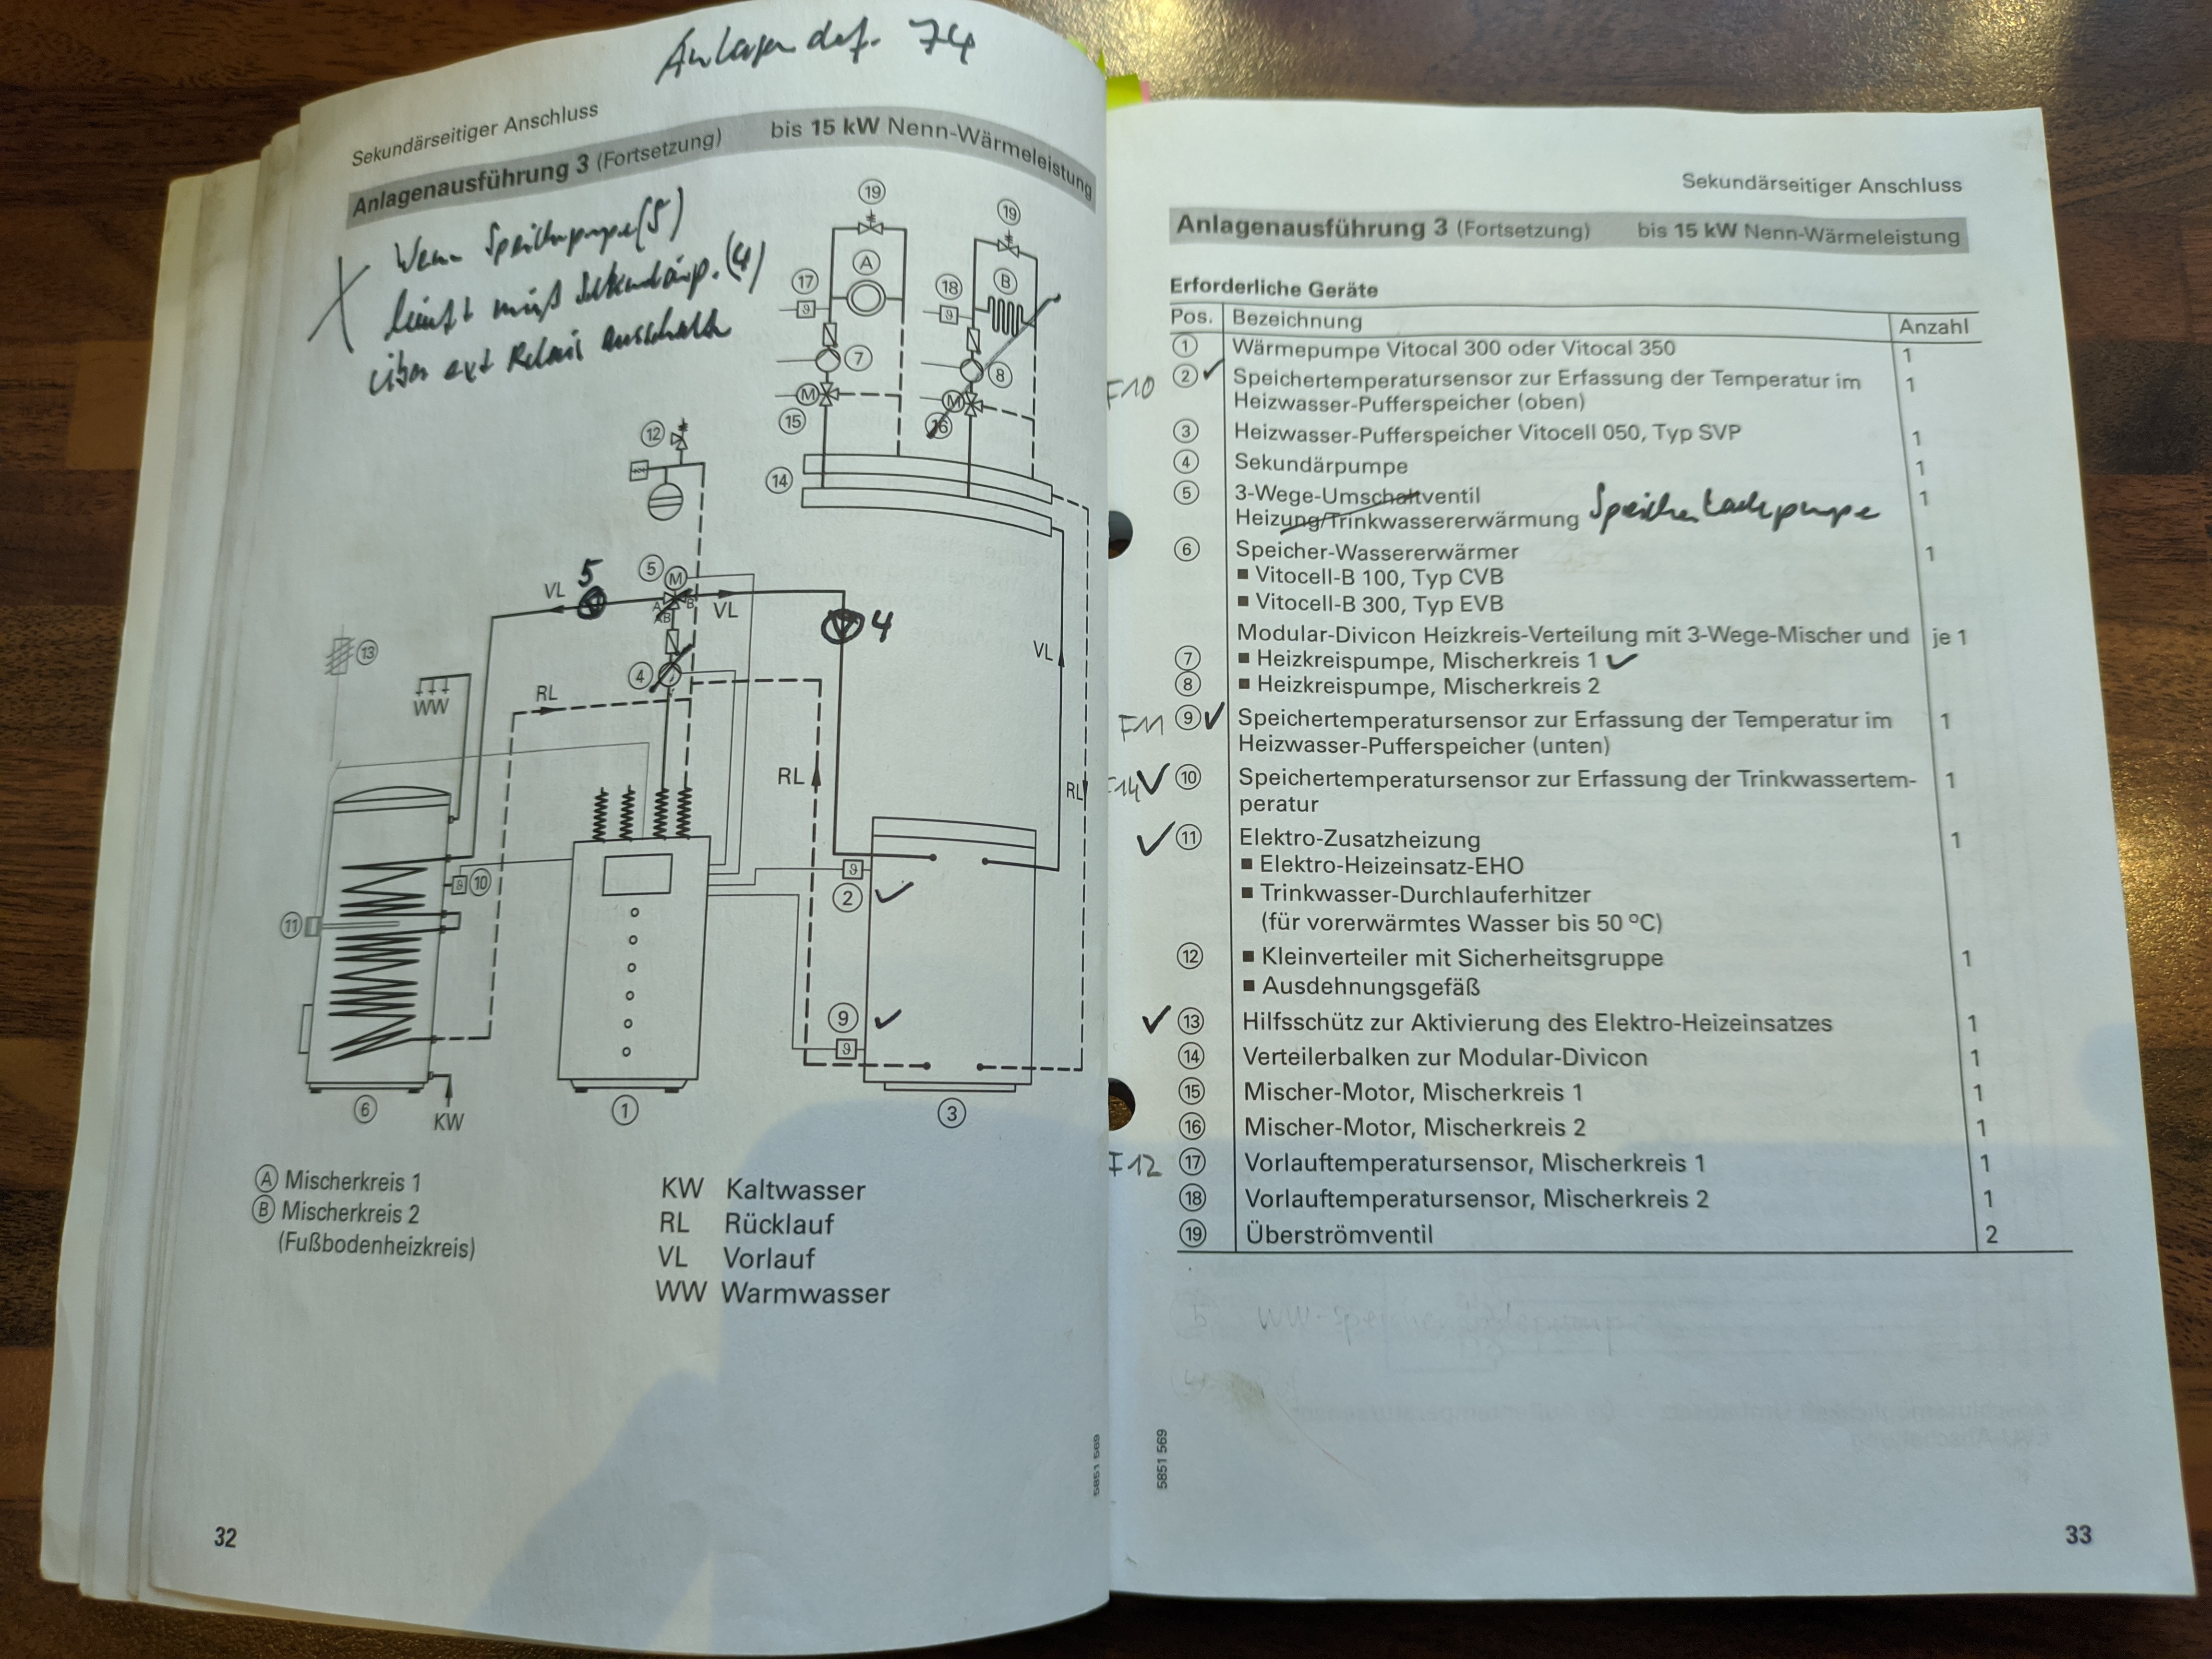 Anlagen def. 74
Sekundärseitiger Anschluss
Anlagenausführung 3 (Fortsetzung) bis 15 kW Nenn-Wärmeleistung
Wenn Speicherpumpe (5)
läuft muß Sekundärp. (4)
über ext Relais ausschalten
19
19
A
B
17
18
7
8
M
M
15
16
12
14
5
5
M
VL
A
B
AB
VL
4
13
4
VL
WW
RL
RL
RL
10
2
11
9
6
1
3
KW
A Mischerkreis 1
B Mischerkreis 2
(Fußbodenheizkreis)
KW Kaltwasser
RL Rücklauf
VL Vorlauf
WW Warmwasser
5851 569
32
Sekundärseitiger Anschluss
Anlagenausführung 3 (Fortsetzung) bis 15 kW Nenn-Wärmeleistung
Erforderliche Geräte
Pos. Bezeichnung Anzahl
1 Wärmepumpe Vitocal 300 oder Vitocal 350 1
F10 2 ✓ Speichertemperatursensor zur Erfassung der Temperatur im 1
Heizwasser-Pufferspeicher (oben)
3 Heizwasser-Pufferspeicher Vitocell 050, Typ SVP 1
4 Sekundärpumpe 1
5 3-Wege-Umschaltventil 1
Heizung/Trinkwassererwärmung Speicherladepumpe
6 Speicher-Wassererwärmer 1
■ Vitocell-B 100, Typ CVB
■ Vitocell-B 300, Typ EVB
Modular-Divicon Heizkreis-Verteilung mit 3-Wege-Mischer und je 1
7 ■ Heizkreispumpe, Mischerkreis 1 ✓
8 ■ Heizkreispumpe, Mischerkreis 2
F11 9 ✓ Speichertemperatursensor zur Erfassung der Temperatur im 1
Heizwasser-Pufferspeicher (unten)
F14 ✓ 10 Speichertemperatursensor zur Erfassung der Trinkwassertem- 1
peratur
✓ 11 Elektro-Zusatzheizung 1
■ Elektro-Heizeinsatz-EHO
■ Trinkwasser-Durchlauferhitzer
(für vorerwärmtes Wasser bis 50 °C)
12 ■ Kleinverteiler mit Sicherheitsgruppe 1
■ Ausdehnungsgefäß
✓ 13 Hilfsschütz zur Aktivierung des Elektro-Heizeinsatzes 1
14 Verteilerbalken zur Modular-Divicon 1
15 Mischer-Motor, Mischerkreis 1 1
16 Mischer-Motor, Mischerkreis 2 1
F12 17 Vorlauftemperatursensor, Mischerkreis 1 1
18 Vorlauftemperatursensor, Mischerkreis 2 1
19 Überströmventil 2
5851 569
33